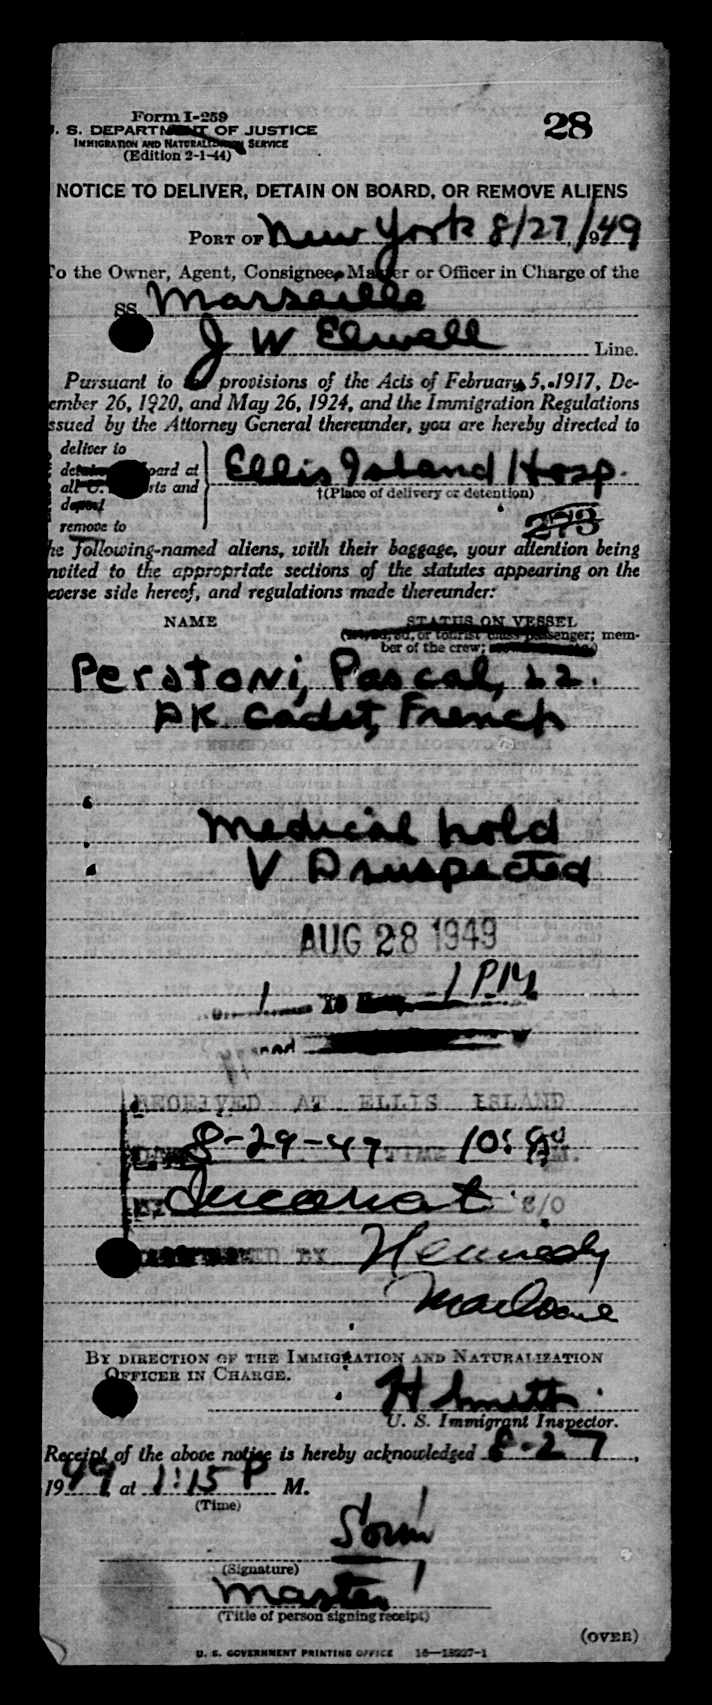 Form I-259
U. S. DEPARTMENT OF JUSTICE
IMMIGRATION AND NATURALIZATION SERVICE
(Edition 2-1-44)
28
NOTICE TO DELIVER, DETAIN ON BOARD, OR REMOVE ALIENS
PORT OF New York 8/27, 1949
To the Owner, Agent, Consignee, Master or Officer in Charge of the
SS Marseille
J W Elwell Line.
Pursuant to the provisions of the Acts of February 5, 1917, De-
ember 26, 1920, and May 26, 1924, and the Immigration Regulations
ssued by the Attorney General thereunder, you are hereby directed to
deliver to
detain on board at
all U. S. ports and
deport
remove to
Ellis Island Hosp.
†(Place of delivery or detention)
273
he following-named aliens, with their baggage, your attention being
nvited to the appropriate sections of the statutes appearing on the
everse side hereof, and regulations made thereunder:
NAME
STATUS ON VESSEL
or tourist class passenger; mem-
ber of the crew;
Perstoni, Pascal, 22.
DK. Cadet, French
Medical hold
V D suspected
AUG 28 1949
1 1 PM
RECEIVED AT ELLIS ISLAND
8-29-47 TIME M.
S/O
BY Kennedy
BY DIRECTION OF THE IMMIGRATION AND NATURALIZATION
OFFICER IN CHARGE.
H Smith
U. S. Immigrant Inspector.
Receipt of the above notice is hereby acknowledged 8-27,
1949, at 1:15 P M.
(Time)
(Signature)
Master
(Title of person signing receipt)
(OVER)
U. S. GOVERNMENT PRINTING OFFICE 16—18227-1